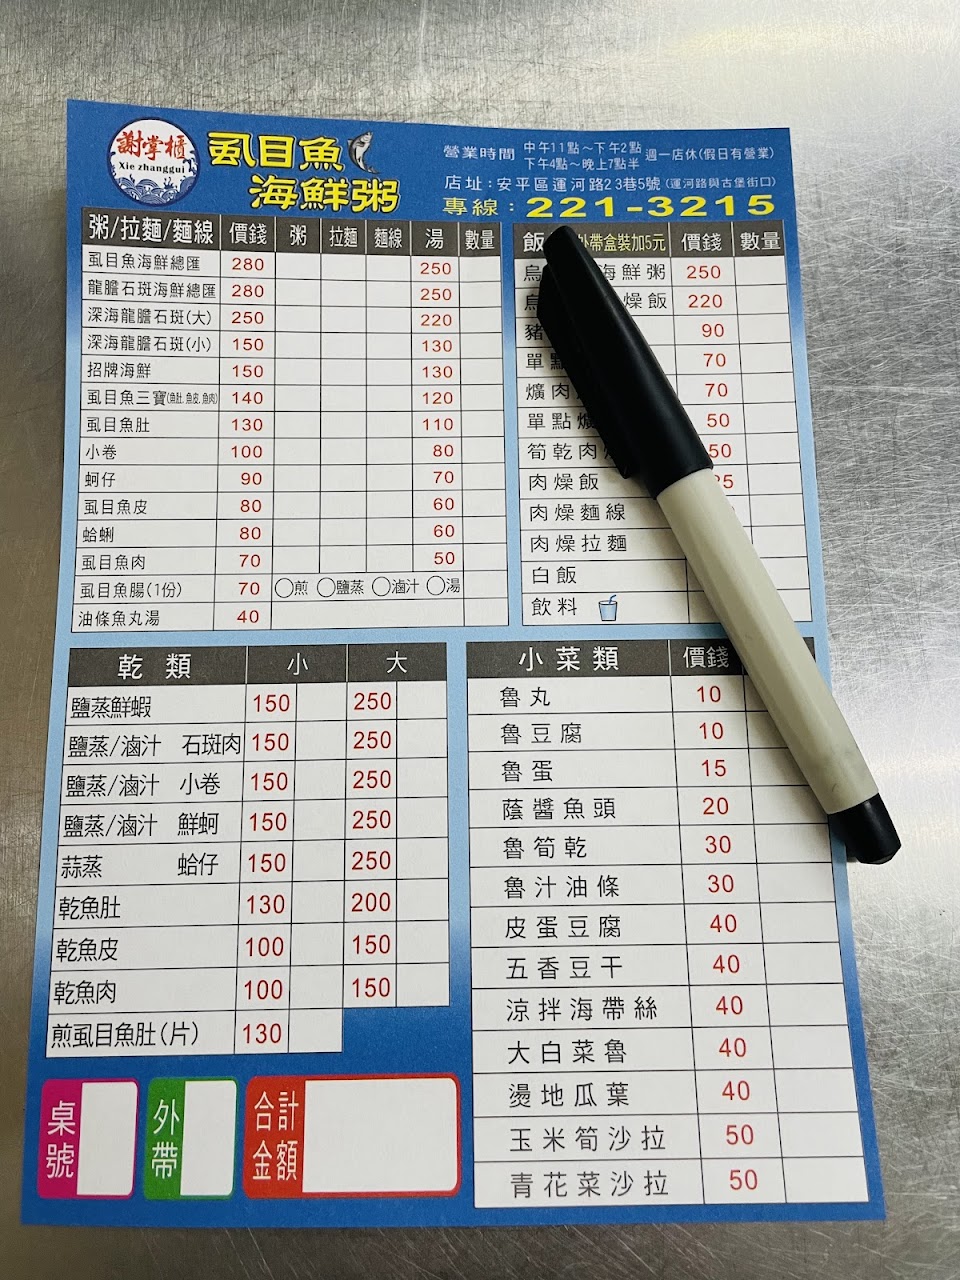 謝掌櫃
Xie zhanggui
虱目魚
海鮮粥
營業時間 中午11點～下午2點 週一店休(假日有營業)
下午4點～晚上7點半
店址：安平區運河路23巷5號(運河路與古堡街口)
專線：221-3215
粥/拉麵/麵線 價錢 粥 拉麵 麵線 湯 數量
虱目魚海鮮總匯 280 250
龍膽石斑海鮮總匯 280 250
深海龍膽石斑(大) 250 220
深海龍膽石斑(小) 150 130
招牌海鮮 150 130
虱目魚三寶(魚肚.魚皮.魚肉) 140 120
虱目魚肚 130 110
小卷 100 80
蚵仔 90 70
虱目魚皮 80 60
蛤蜊 80 60
虱目魚肉 70 50
虱目魚腸(1份) 70 ◯煎 ◯鹽蒸 ◯滷汁 ◯湯
油條魚丸湯 40
飯 外帶盒裝加5元 價錢 數量
烏 海鮮粥 250
燥飯 220
豬 90
單點 70
爌肉 70
單點爌 50
筍乾肉 50
肉燥飯
肉燥麵線
肉燥拉麵
白飯
飲料
乾類 小 大
鹽蒸鮮蝦 150 250
鹽蒸/滷汁 石斑肉 150 250
鹽蒸/滷汁 小卷 150 250
鹽蒸/滷汁 鮮蚵 150 250
蒜蒸 蛤仔 150 250
乾魚肚 130 200
乾魚皮 100 150
乾魚肉 100 150
煎虱目魚肚(片) 130
小菜類 價錢
魯丸 10
魯豆腐 10
魯蛋 15
蔭醬魚頭 20
魯筍乾 30
魯汁油條 30
皮蛋豆腐 40
五香豆干 40
涼拌海帶絲 40
大白菜魯 40
燙地瓜葉 40
玉米筍沙拉 50
青花菜沙拉 50
桌號
外帶
合計金額